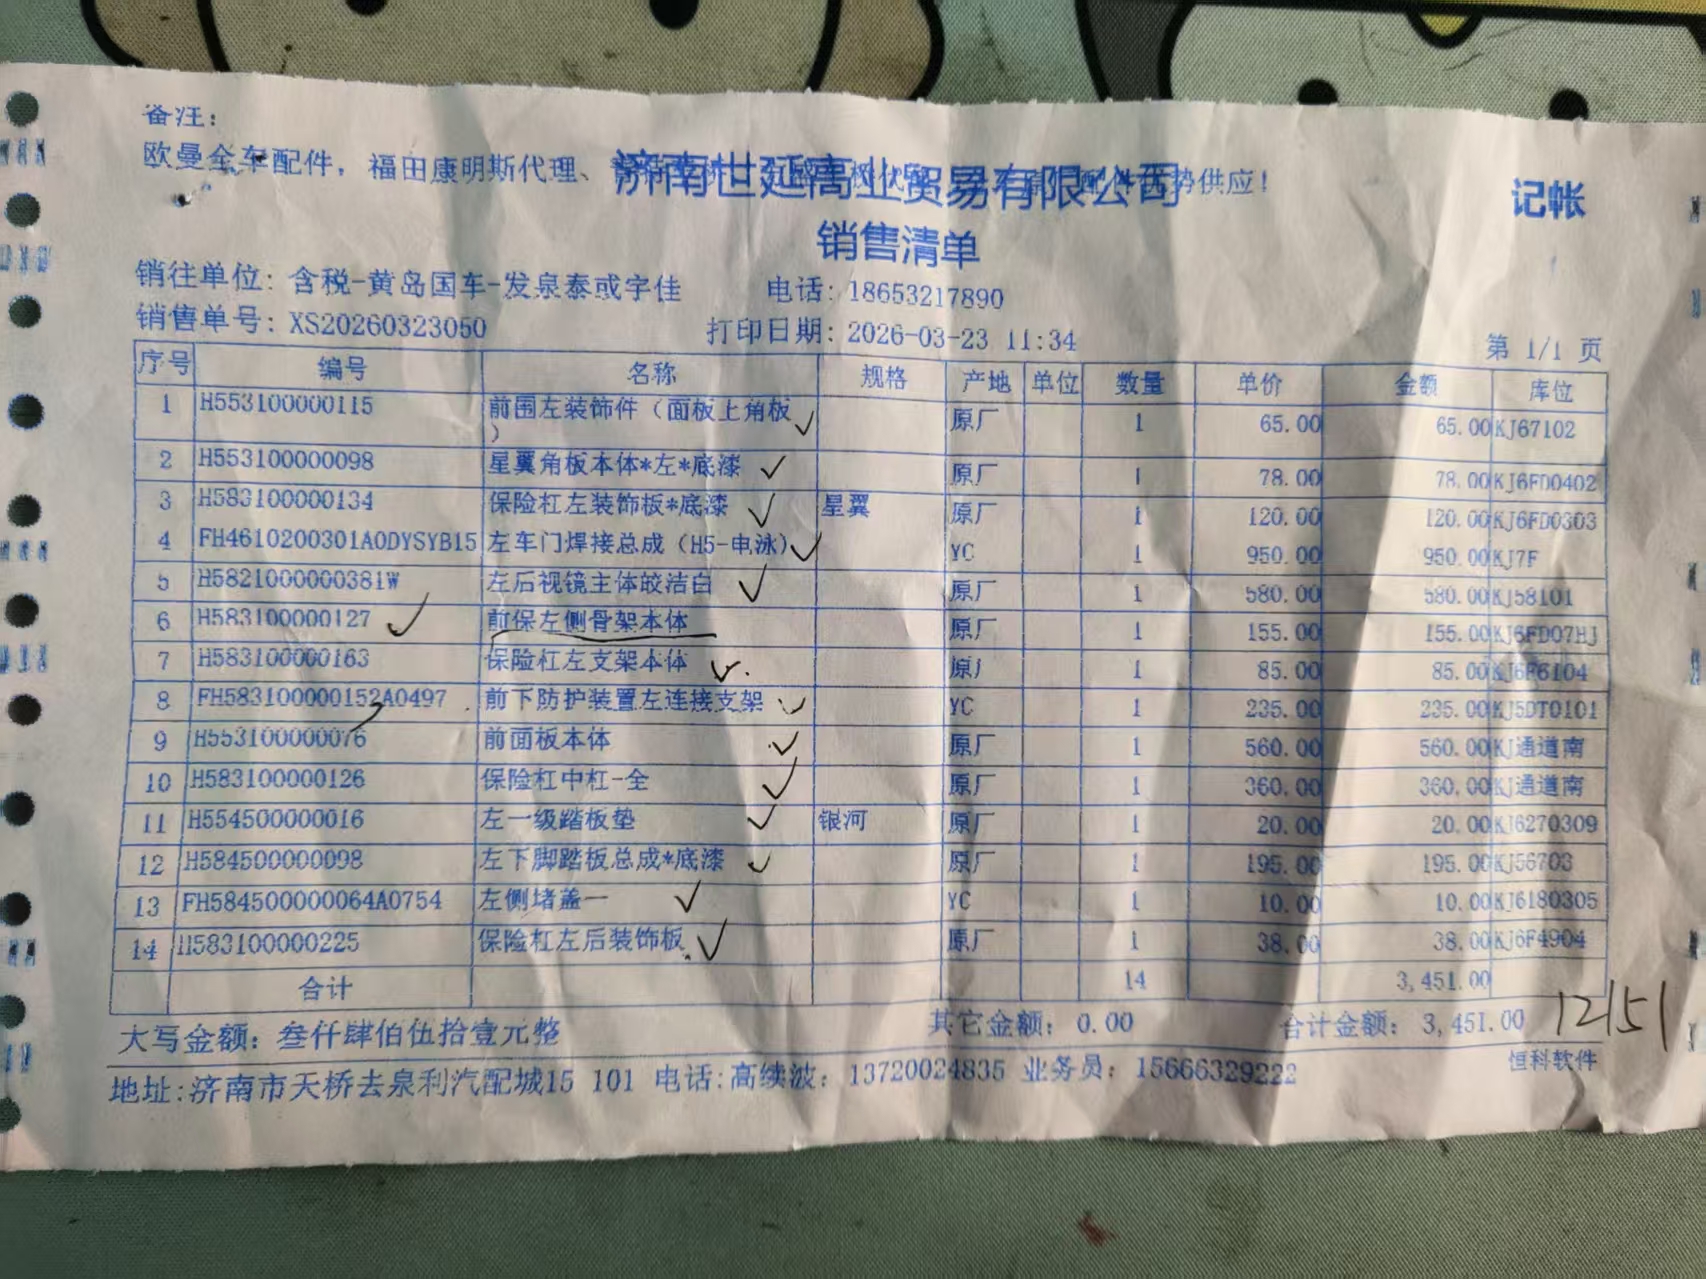 备注:
欧曼全车配件，福田康明斯代理、 势供应！
济南世延高业贸易有限公司 记帐
销售清单
销往单位: 含税-黄岛国车-发泉泰或宇佳 电话: 18653217890
销售单号: XS20260323050 打印日期: 2026-03-23 11:34 第 1/1 页
序号 编号 名称 规格 产地 单位 数量 单价 金额 库位
1 H553100000115 前围左装饰件（面板上角板） 原厂 1 65.00 65.00 KJ67102
2 H553100000098 星翼角板本体*左*底漆 原厂 1 78.00 78.00 KJ6FD0402
3 H583100000134 保险杠左装饰板*底漆 星翼 原厂 1 120.00 120.00 KJ6FD0303
4 FH4610200301A0DYSYB15 左车门焊接总成（H5-电泳） YC 1 950.00 950.00 KJ7F
5 H5821000000381W 左后视镜主体皎洁白 原厂 1 580.00 580.00 KJ58101
6 H583100000127 前保左侧骨架本体 原厂 1 155.00 155.00 KJ6FD07HJ
7 H583100000163 保险杠左支架本体 原厂 1 85.00 85.00 KJ6F6104
8 FH583100000152A0497 前下防护装置左连接支架 YC 1 235.00 235.00 KJ5DT0101
9 H553100000076 前面板本体 原厂 1 560.00 560.00 KJ通道南
10 H583100000126 保险杠中杠-全 原厂 1 360.00 360.00 KJ通道南
11 H554500000016 左一级踏板垫 银河 原厂 1 20.00 20.00 KJ6270309
12 H584500000098 左下脚踏板总成*底漆 原厂 1 195.00 195.00 KJ56703
13 FH584500000064A0754 左侧堵盖一 YC 1 10.00 10.00 KJ6180305
14 H583100000225 保险杠左后装饰板 原厂 1 38.00 38.00 KJ6F4904
合计 14 3,451.00
大写金额: 叁仟肆佰伍拾壹元整 其它金额: 0.00 合计金额: 3,451.00 12151
恒科软件
地址:济南市天桥去泉利汽配城15 101 电话:高续波: 13720024835 业务员: 15666329222